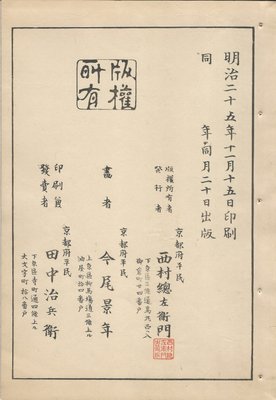 明治二十五年十一月十五日印刷
同　年同月二十日出版
版權
所有
版權所有者
發行者
京都府平民
西村總左衞門
下京區三條通烏丸西入
御倉町廿四番戸
畫者
京都府平民
今尾景年
上京區柳馬場通三條上ル
油屋町十八番戸
印刷兼
發賣者
京都府平民
田中治兵衞
下京區寺町通四條上ル
大文字町十八番戸